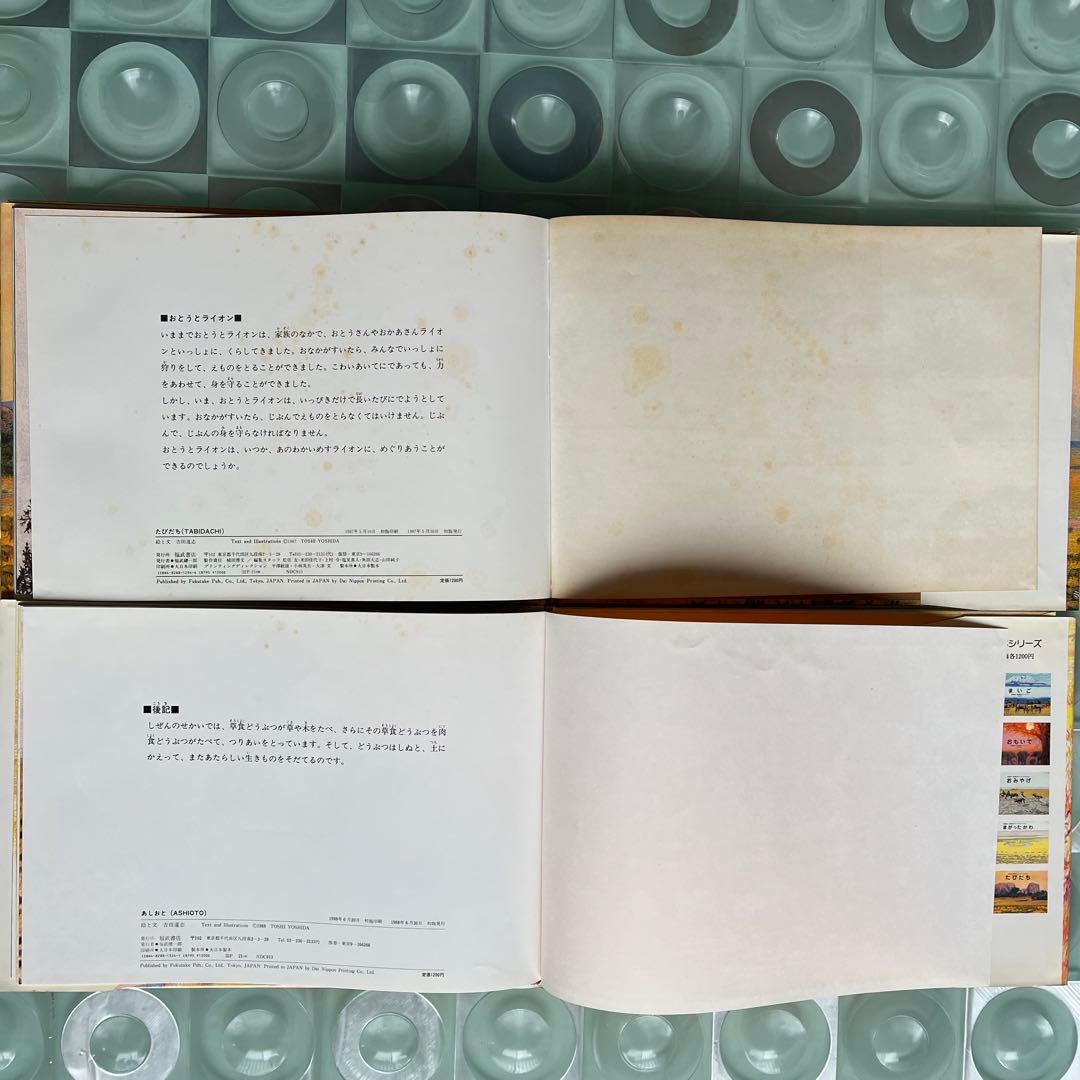 ■おとうとライオン■
いままでおとうとライオンは、家族のなかで、おとうさんやおかあさんライオ
ンといっしょに、くらしてきました。おなかがすいたら、みんなでいっしょに
狩りをして、えものをとることができました。こわいあいてにであっても、力
をあわせて、身を守ることができました。
しかし、いま、おとうとライオンは、いっぴきだけで長いたびにでようとして
います。おなかがすいたら、じぶんでえものをとらなくてはいけません。じぶ
んで、じぶんの身を守らなければなりません。
おとうとライオンは、いつか、あのわかいめすライオンに、めぐりあうことが
できるのでしょうか。
たびだち(TABIDACHI)
1987年5月10日 初版印刷 1987年5月20日 初版発行
絵と文 吉田遠志 Text and Illustrations ©1987 TOSHI YOSHIDA
発行所 福武書店 〒102 東京都千代田区九段南2-3-28 Tel03-230-2131(代) 振替・東京9-166266
発行者●福武總一郎
印刷所●大日本印刷 製本所●大日本製本
Published by Fukutake Pub., Co., Ltd., Tokyo, JAPAN. Printed in JAPAN by Dai Nippon Printing Co., Ltd. 定価1200円
■後記■
しぜんのせかいでは、草食どうぶつが草や木をたべ、さらにその草食どうぶつを肉
食どうぶつがたべて、つりあいをとっています。そして、どうぶつはしぬと、土に
かえって、またあたらしい生きものをそだてるのです。
あしおと(ASHIOTO)
1988年6月20日 初版印刷 1988年6月30日 初版発行
絵と文 吉田遠志 Text and Illustration ©1988 TOSHI YOSHIDA
発行所 福武書店 〒102 東京都千代田区九段南2-3-28 Tel 03-230-2131(代) 振替・東京9-166266
発行者●福武總一郎
印刷所●大日本印刷 製本所●大日本製本
Published by Fukutake Pub., Co., Ltd., Tokyo, JAPAN. Printed in JAPAN by Dai Nippon Printing Co., Ltd. 定価1200円
シリーズ
各1200円
まいご
おもいで
おみやげ
まがったかわ
たびだち